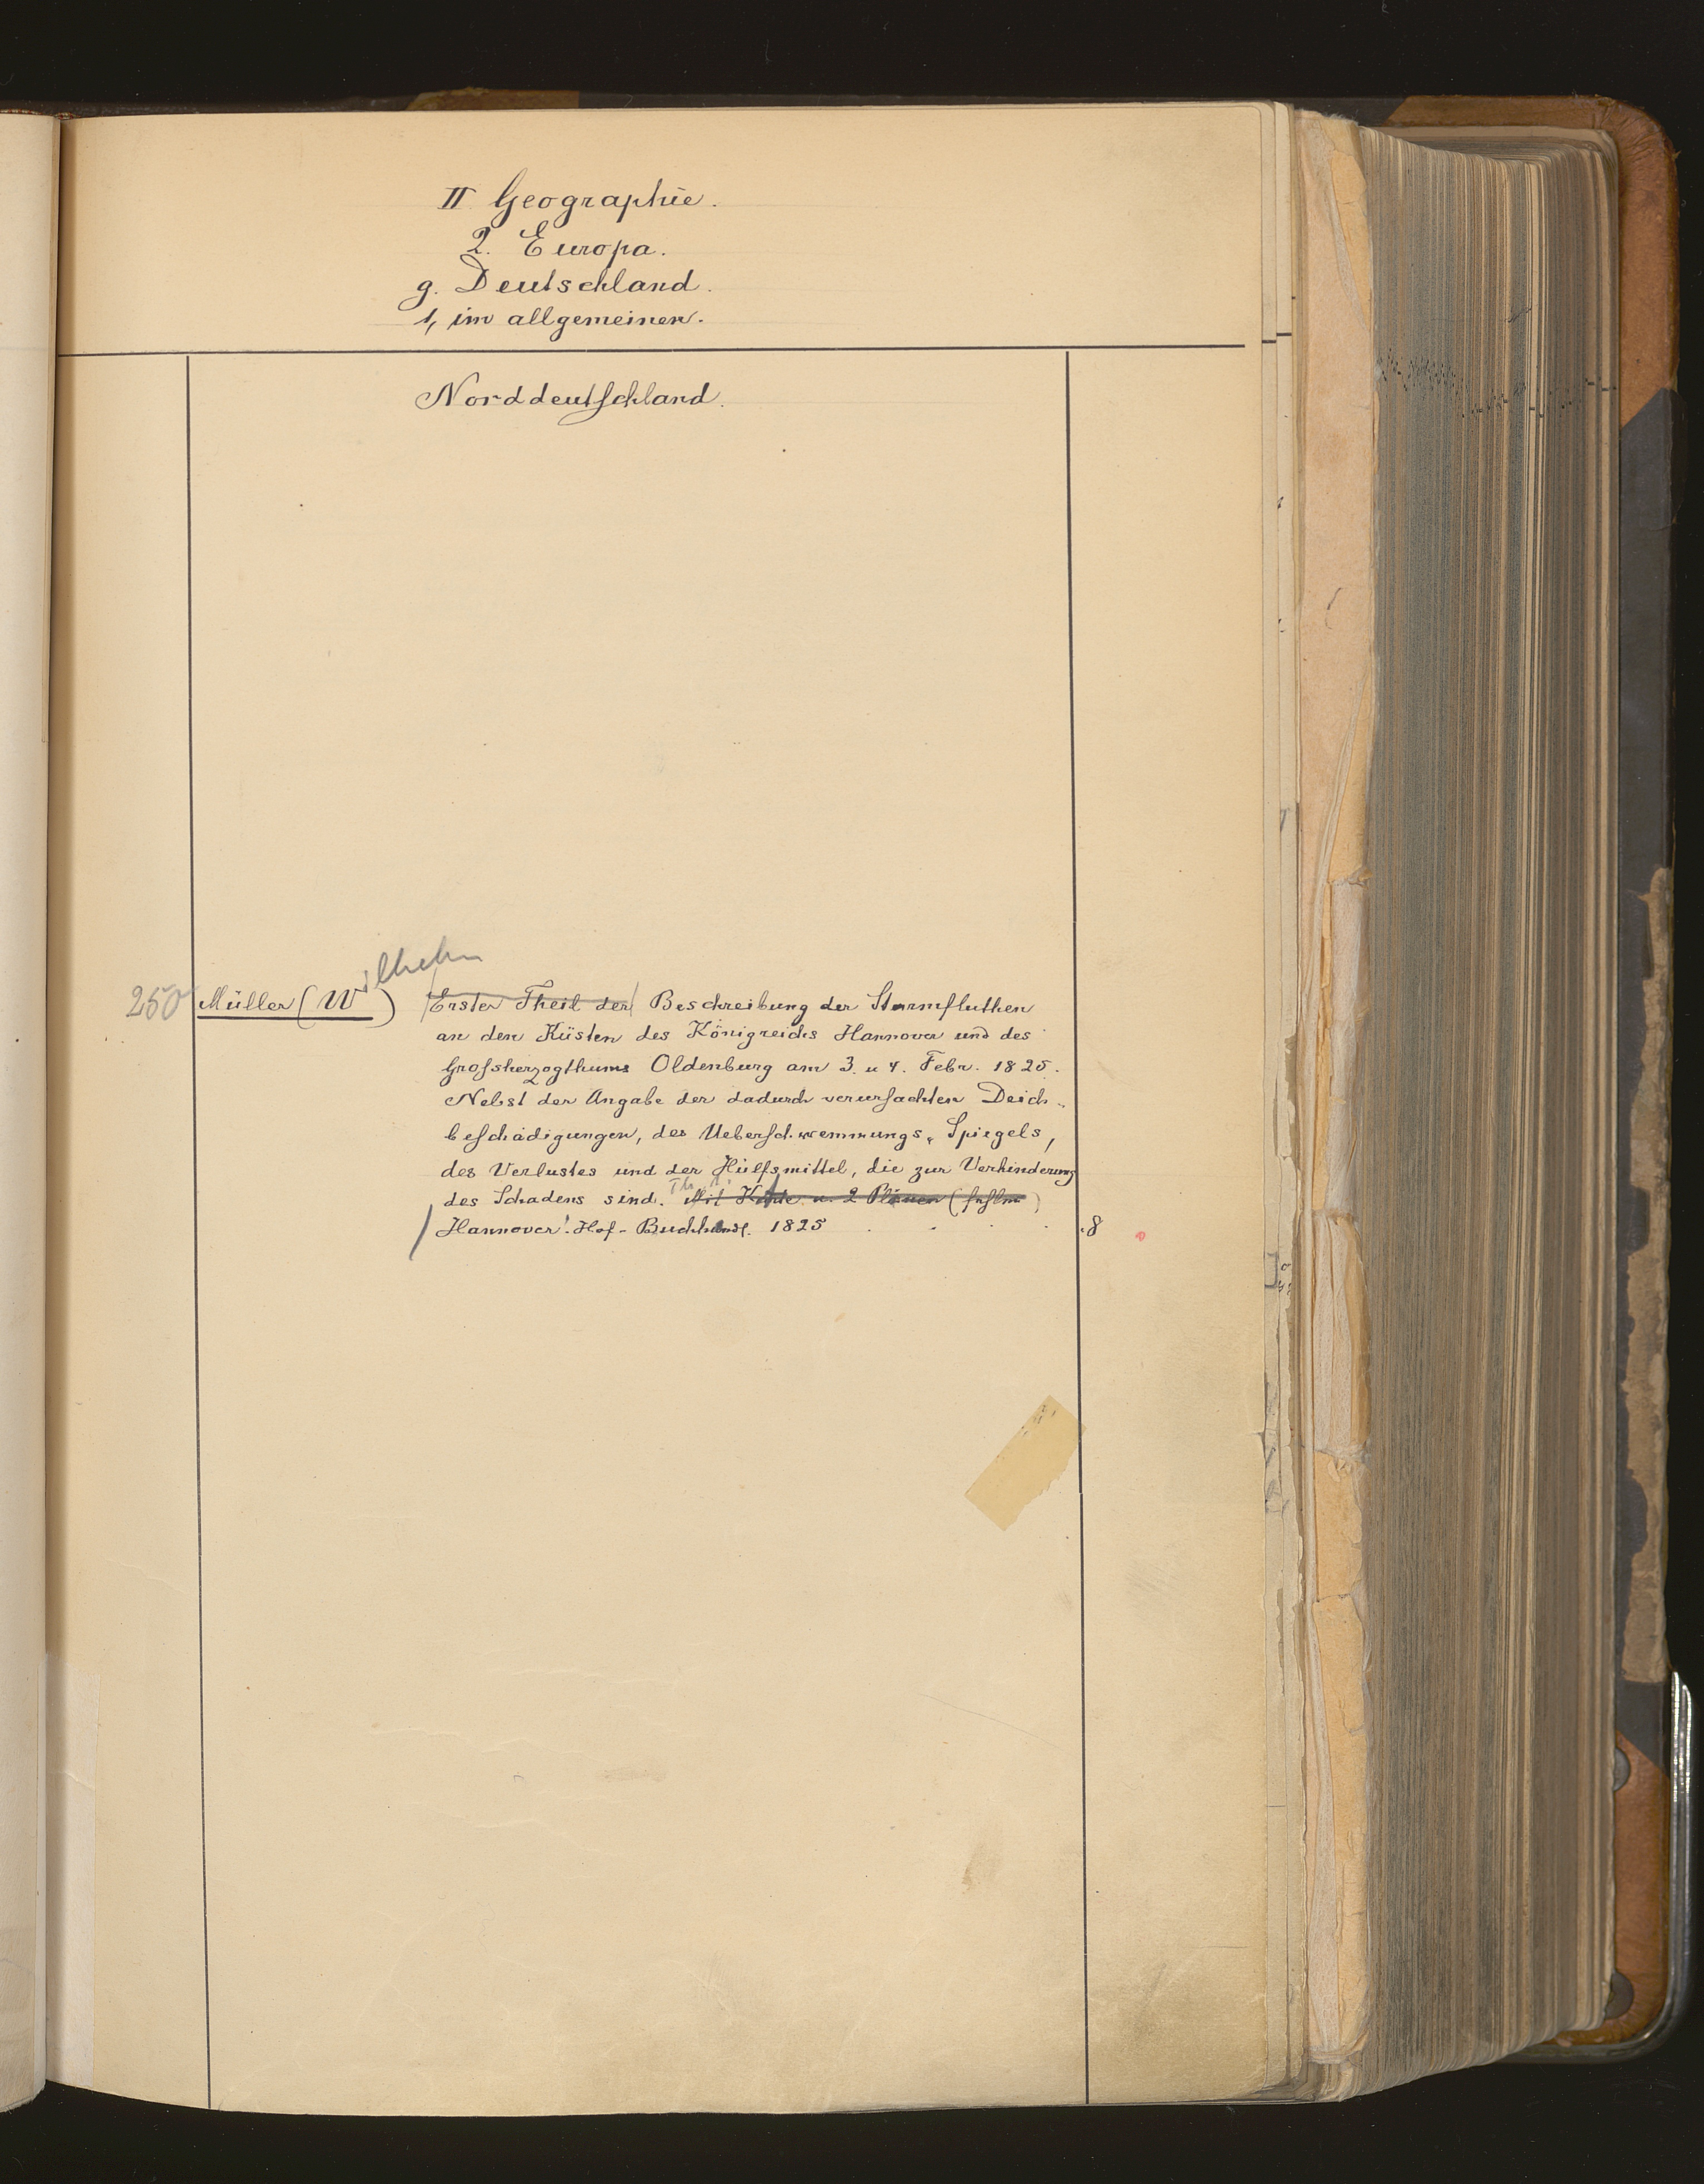 II Geographie.
2. Europa.
g. Deutschland.
1, im allgemeinen.
Norddeutschland.
250 Müller (Wilhelm) Erster Theil der Beschreibung der Sturmfluthen
an den Küsten des Königreichs Hannover und des
Grossherzogthums Oldenburg am 3. u 4. Febr. 1825.
Nebst der Angabe der dadurch verursachten Deich-
beschädigungen, des Ueberschwemmungs-Spiegels,
des Verlustes und der Hülfsmittel, die zur Verhinderung
des Schadens sind. Th. 1. Mit Karte u. 2 Plänen (fehlen)
Hannover: Hof-Buchhandl. 1825 . . . . 8